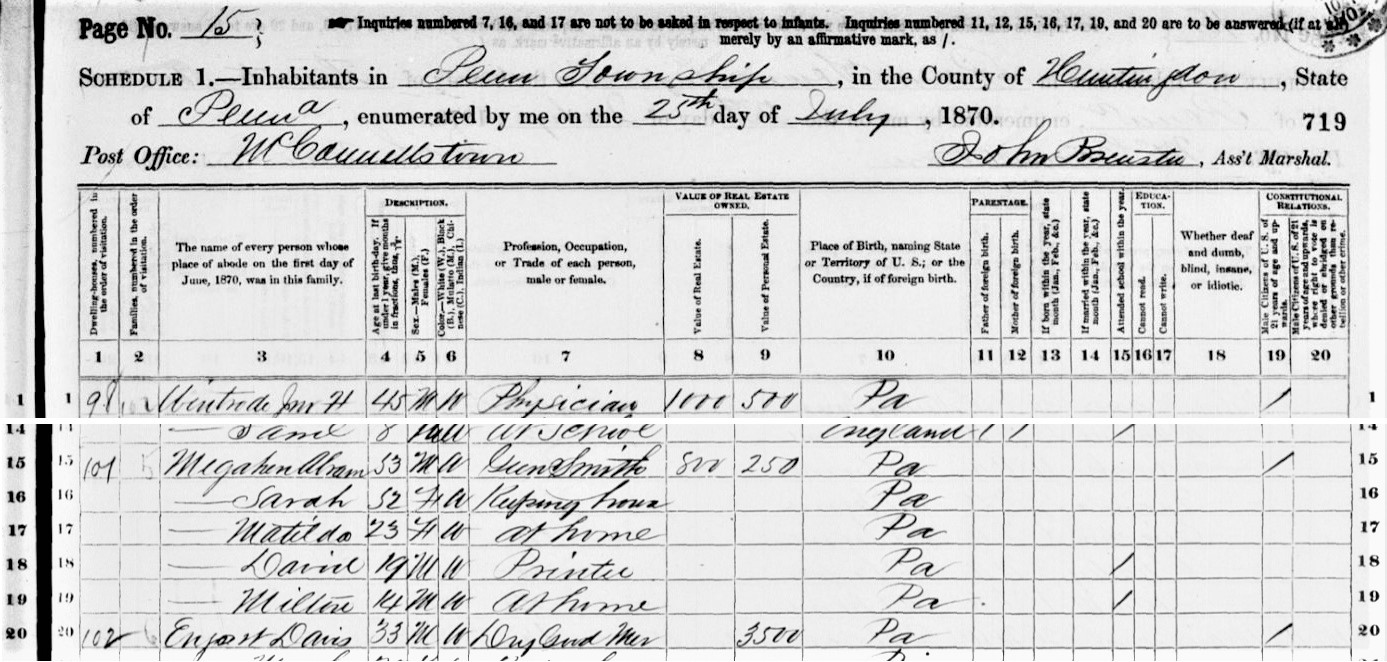 Page No. 15
Inquiries numbered 7, 16, and 17 are not to be asked in respect to infants. Inquiries numbered 11, 12, 15, 16, 17, 19, and 20 are to be answered (if at all)
merely by an affirmative mark, as /.
SCHEDULE 1.—Inhabitants in Penn Township, in the County of Huntingdon, State
of Penna, enumerated by me on the 25th day of July, 1870. 719
Post Office: McConnellstown John Brewster, Ass't Marshal.
Dwelling-houses, numbered in the order of visitation.
Families, numbered in the order of visitation.
The name of every person whose place of abode on the first day of June, 1870, was in this family.
DESCRIPTION.
Age at last birth-day. If under 1 year, give months in fractions, thus, 3/12
Sex.—Males (M.), Females (F.)
Color.—White (W.), Black (B.), Mulatto (M.), Chinese (C.), Indian (I.)
Profession, Occupation, or Trade of each person, male or female.
VALUE OF REAL ESTATE OWNED.
Value of Real Estate.
Value of Personal Estate.
Place of Birth, naming State or Territory of U. S.; or the Country, if of foreign birth.
PARENTAGE.
Father of foreign birth.
Mother of foreign birth.
If born within the year, state month (Jan., Feb., &c.)
If married within the year, state month (Jan., Feb., &c.)
Attended school within the year.
EDUCATION.
Cannot read.
Cannot write.
Whether deaf and dumb, blind, insane, or idiotic.
CONSTITUTIONAL RELATIONS.
Male Citizens of U. S. of 21 years of age and upwards.
Male Citizens of U. S. of 21 years of age and upwards, where right to vote is denied or abridged on other grounds than rebellion or other crime.
1 2 3 4 5 6 7 8 9 10 11 12 13 14 15 16 17 18 19 20
1 1 98 Mintrode Jno H 45 M W Physician 1000 500 Pa / 1
14 14 — 8 W At School England / / / 14
15 15 101 Megahen Abram 53 M W Gun Smith 800 250 Pa / 15
16 16 — Sarah 52 F W Keeping house Pa 16
17 17 — Matilda 23 F W at home Pa 17
18 18 — David 19 M W Printer Pa / 18
19 19 — Milton 14 M W At home Pa / 19
20 20 102 Davis 33 M W Dry Good Mer 3500 Pa / 20